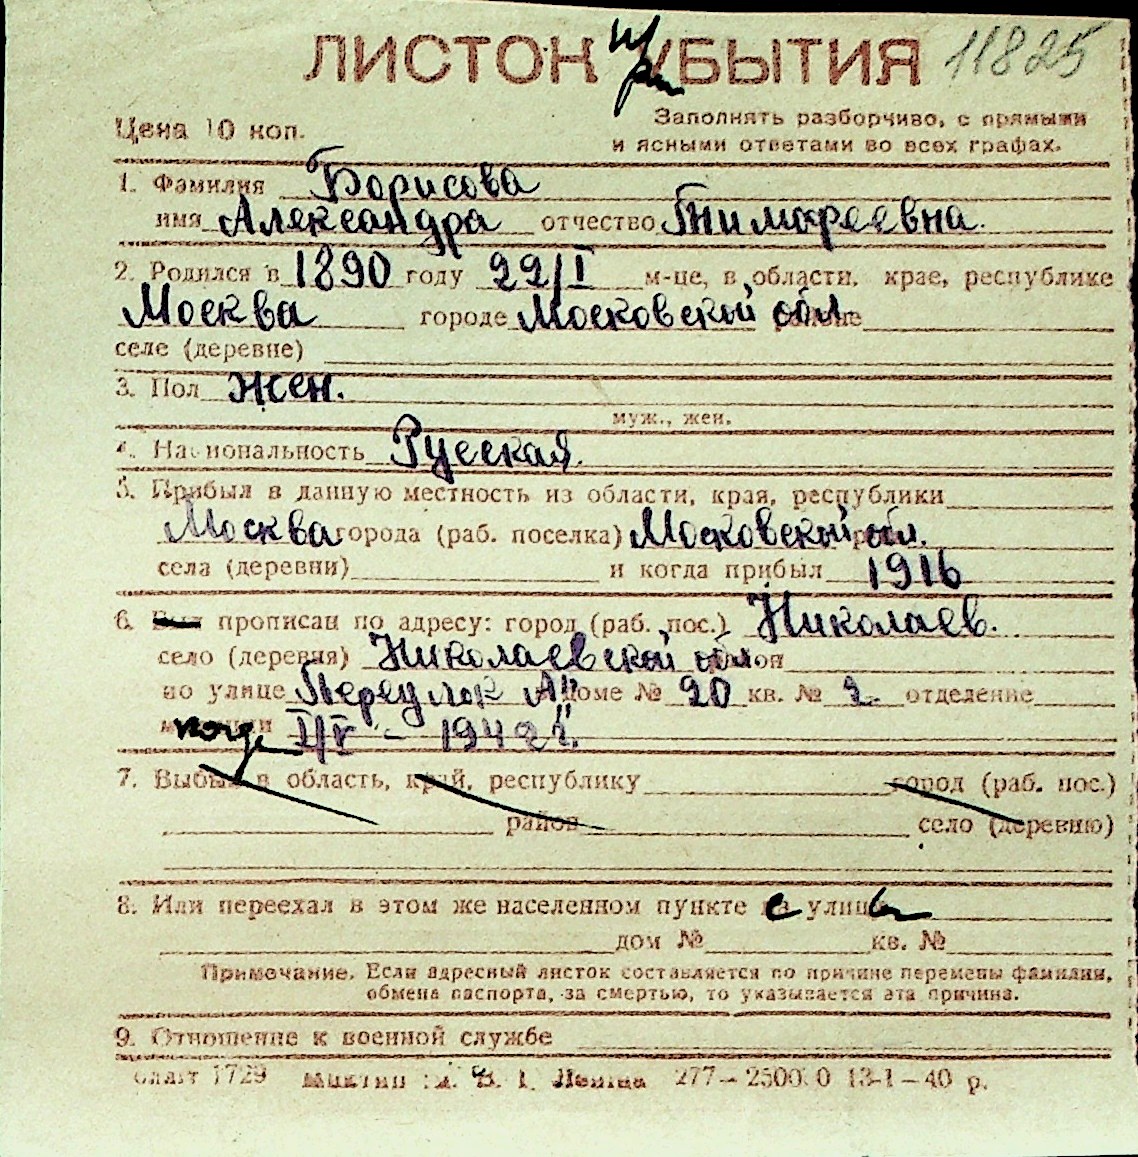 ЛИСТОК при УБЫТИЯ 11825
Цена 10 коп.
Заполнять разборчиво, с прямыми
и ясными ответами во всех графах.
1. Фамилия Борисова
имя Александра отчество Тимофеевна.
2. Родился в 1890 году 22/I м-це, в области, крае, республике
Москва городе Московской обл.
селе (деревне)
3. Пол Жен.
муж., жен.
4. Национальность Русская.
5. Прибыл в данную местность из области, края, республики
Москва города (раб. поселка) Московской обл.
села (деревни) и когда прибыл 1916
6. Был прописан по адресу: город (раб. пос.) Николаев.
село (деревня) Николаевской обл.
по улице Переулок "А" доме № 20 кв. № 2. отделение
когда I/V - 1942 г.
7. Выбыл в область, край, республику город (раб. пос.)
район село (деревню)
8. Или переехал в этом же населенном пункте с улицы
дом № кв. №
Примечание. Если адресный листок составляется по причине перемены фамилии,
обмена паспорта, за смертью, то указывается эта причина.
9. Отношение к военной службе
1729 Ленина 277—2500 0 13-1—40 р.